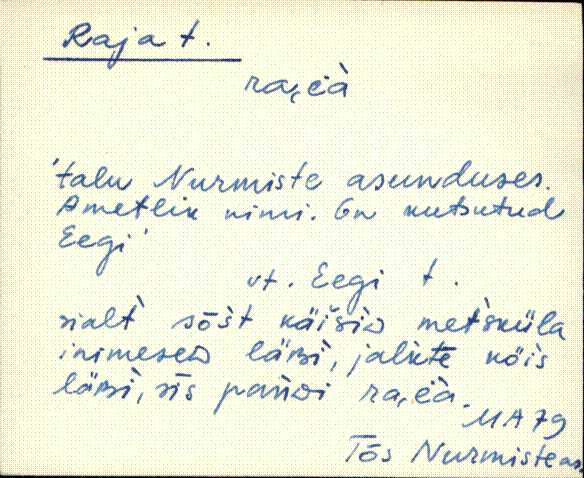 Raja t.
ra,ɛ̀ä
'talu Nurmiste asunduses.
Ametlik nimi. On kutsutud
Eegi'
vt. Eegi t.
sialt sõ̀st käi̬siᴅ metsküla
inimeseᴅ läʙi, jalkte köis
läʙi, sìs pańᴅi
MA 79
Tõs Nurmiste as.